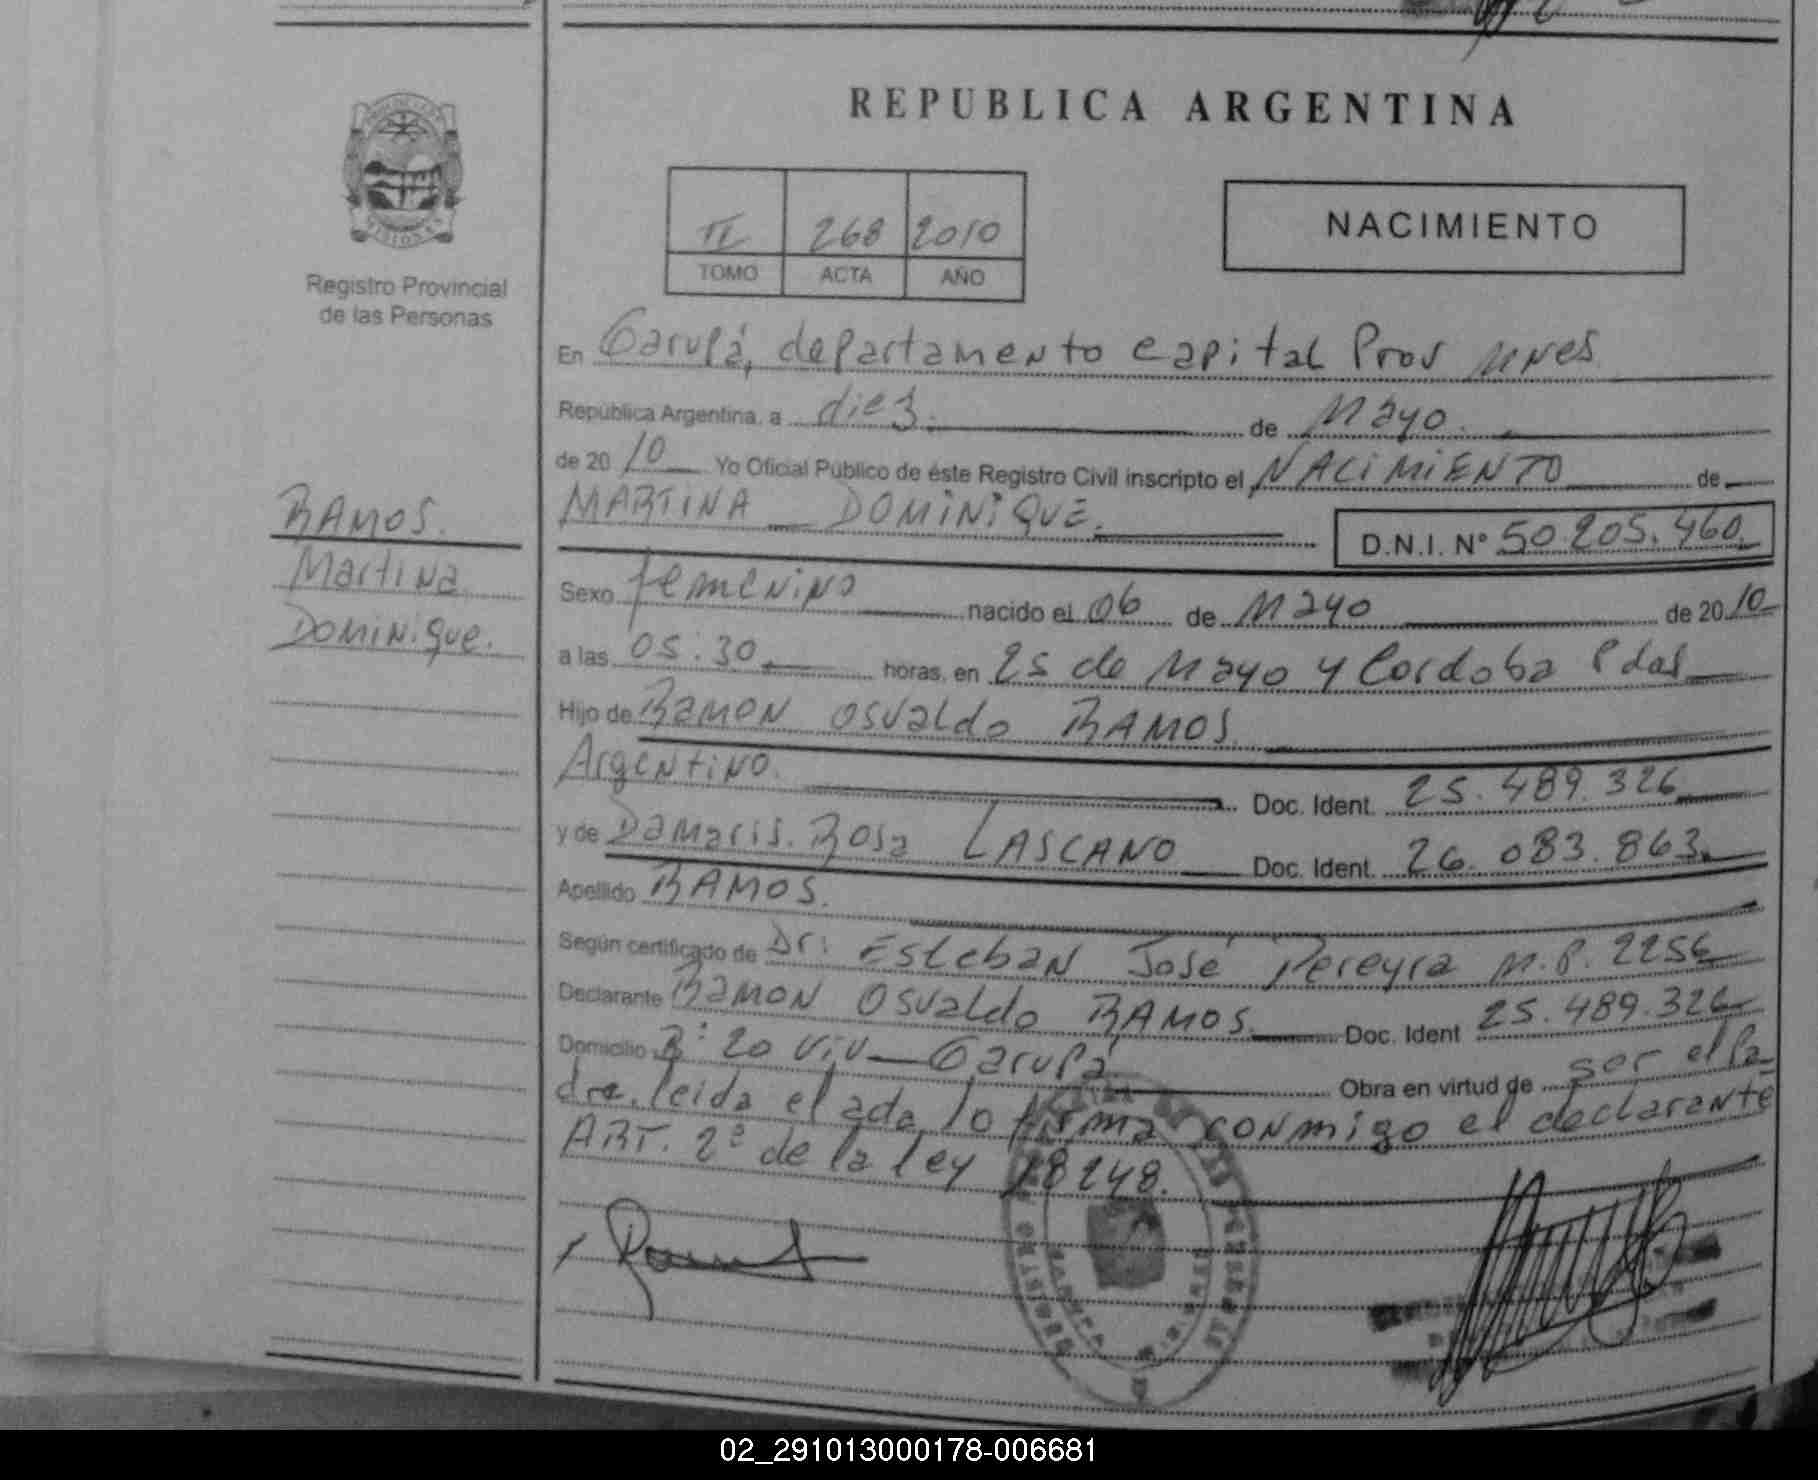 REPUBLICA ARGENTINA
MISIONES
Registro Provincial
de las Personas
II 268 2010
TOMO ACTA AÑO
NACIMIENTO
En Garupá, departamento capital Prov mnes
República Argentina, a diez. de Mayo.
de 2010 Yo Oficial Público de éste Registro Civil inscripto el NACIMIENTO de
MARTINA DOMINIQUE.
D.N.I. Nº 50.205.460.
RAMOS.
Martina
Dominique.
Sexo femenino nacido el 06 de Mayo de 2010
a las 05:30 horas, en 25 de Mayo y Cordoba Pdas
Hijo de Ramon Osvaldo RAMOS.
Argentino. Doc. Ident. 25.489.326
y de Damaris. Rosa LASCANO Doc. Ident. 26.083.863.
Apellido RAMOS.
Según certificado de Dr: Esteban José Pereyra M.P. 2256
Declarante Ramon Osvaldo RAMOS. Doc. Ident 25.489.326
Domicilio Bº 20 Viv - Garupá. Obra en virtud de ser el Pa-
dre. leida el acta lo firma conmigo el declarante
ART. 2º de la ley 18248.
02_291013000178-006681